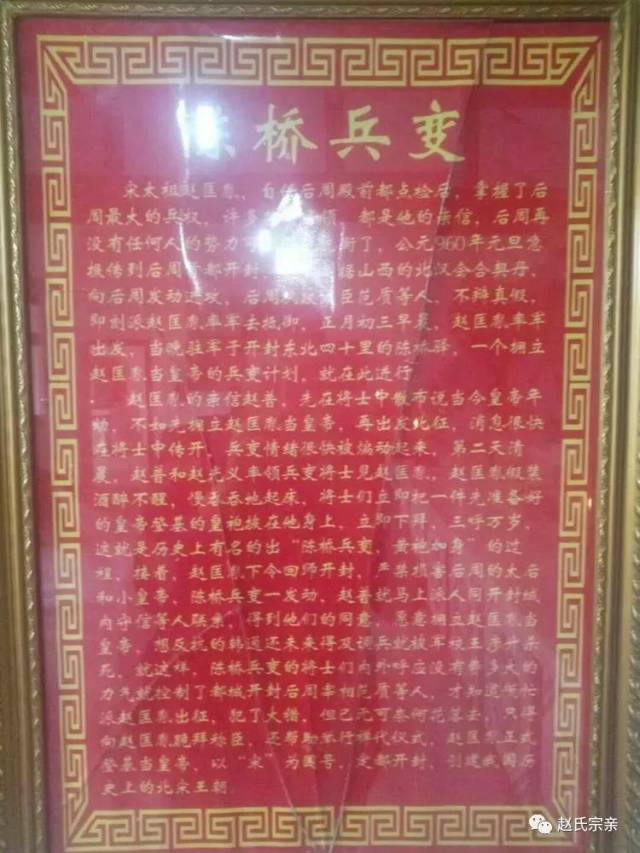 陈桥兵变
宋太祖赵匡胤，自任后周殿前都点检后，掌握了后
周最大的兵权，许多 领，都是他的亲信，后周再
没有任何人的势力可 衡了，公元960年元旦急
报传到后周首都开封， 山西的北汉会合契丹，
向后周发动进攻，后周 臣范质等人，不辩真假，
即刻派赵匡胤率军去抵御，正月初三早晨，赵匡胤率军
出发，当晚驻军于开封东北四十里的陈桥驿，一个拥立
赵匡胤当皇帝的兵变计划，就在此进行
赵匡胤的亲信赵普，先在将士中散布说当今皇帝年
幼，不如先拥立赵匡胤当皇帝，再出发北征，消息很快
在将士中传开，兵变情绪很快被煽动起来，第二天清
晨，赵普和赵光义率领兵变将士见赵匡胤，赵匡胤假装
酒醉不醒，慢吞吞地起床，将士们立即把一件先准备好
的皇帝登基的皇袍披在他身上，立即下拜，三呼万岁，
这就是历史上有名的出“陈桥兵变，黄袍加身”的过
程，接着，赵匡胤下令回师开封，严禁损害后周的太后
和小皇帝，陈桥兵变一发动，赵普就马上派人同开封城
内守信等人联系，得到他们的同意，愿意拥立赵匡胤当
皇帝，想反抗的韩通还未来得及调兵就被军校王彦升杀
死，就这样，陈桥兵变的将士们内外呼应没有费多大的
力气就控制了都城开封后周宰相范质等人，才知道慌忙
派赵匡胤出征，犯了大错，但已无可奈何花落去，只得
向赵匡胤跪拜称臣，还帮助举行禅代仪式，赵匡胤正式
登基当皇帝，以“宋”为国号，定都开封，创建我国历
史上的北宋王朝
赵氏宗亲